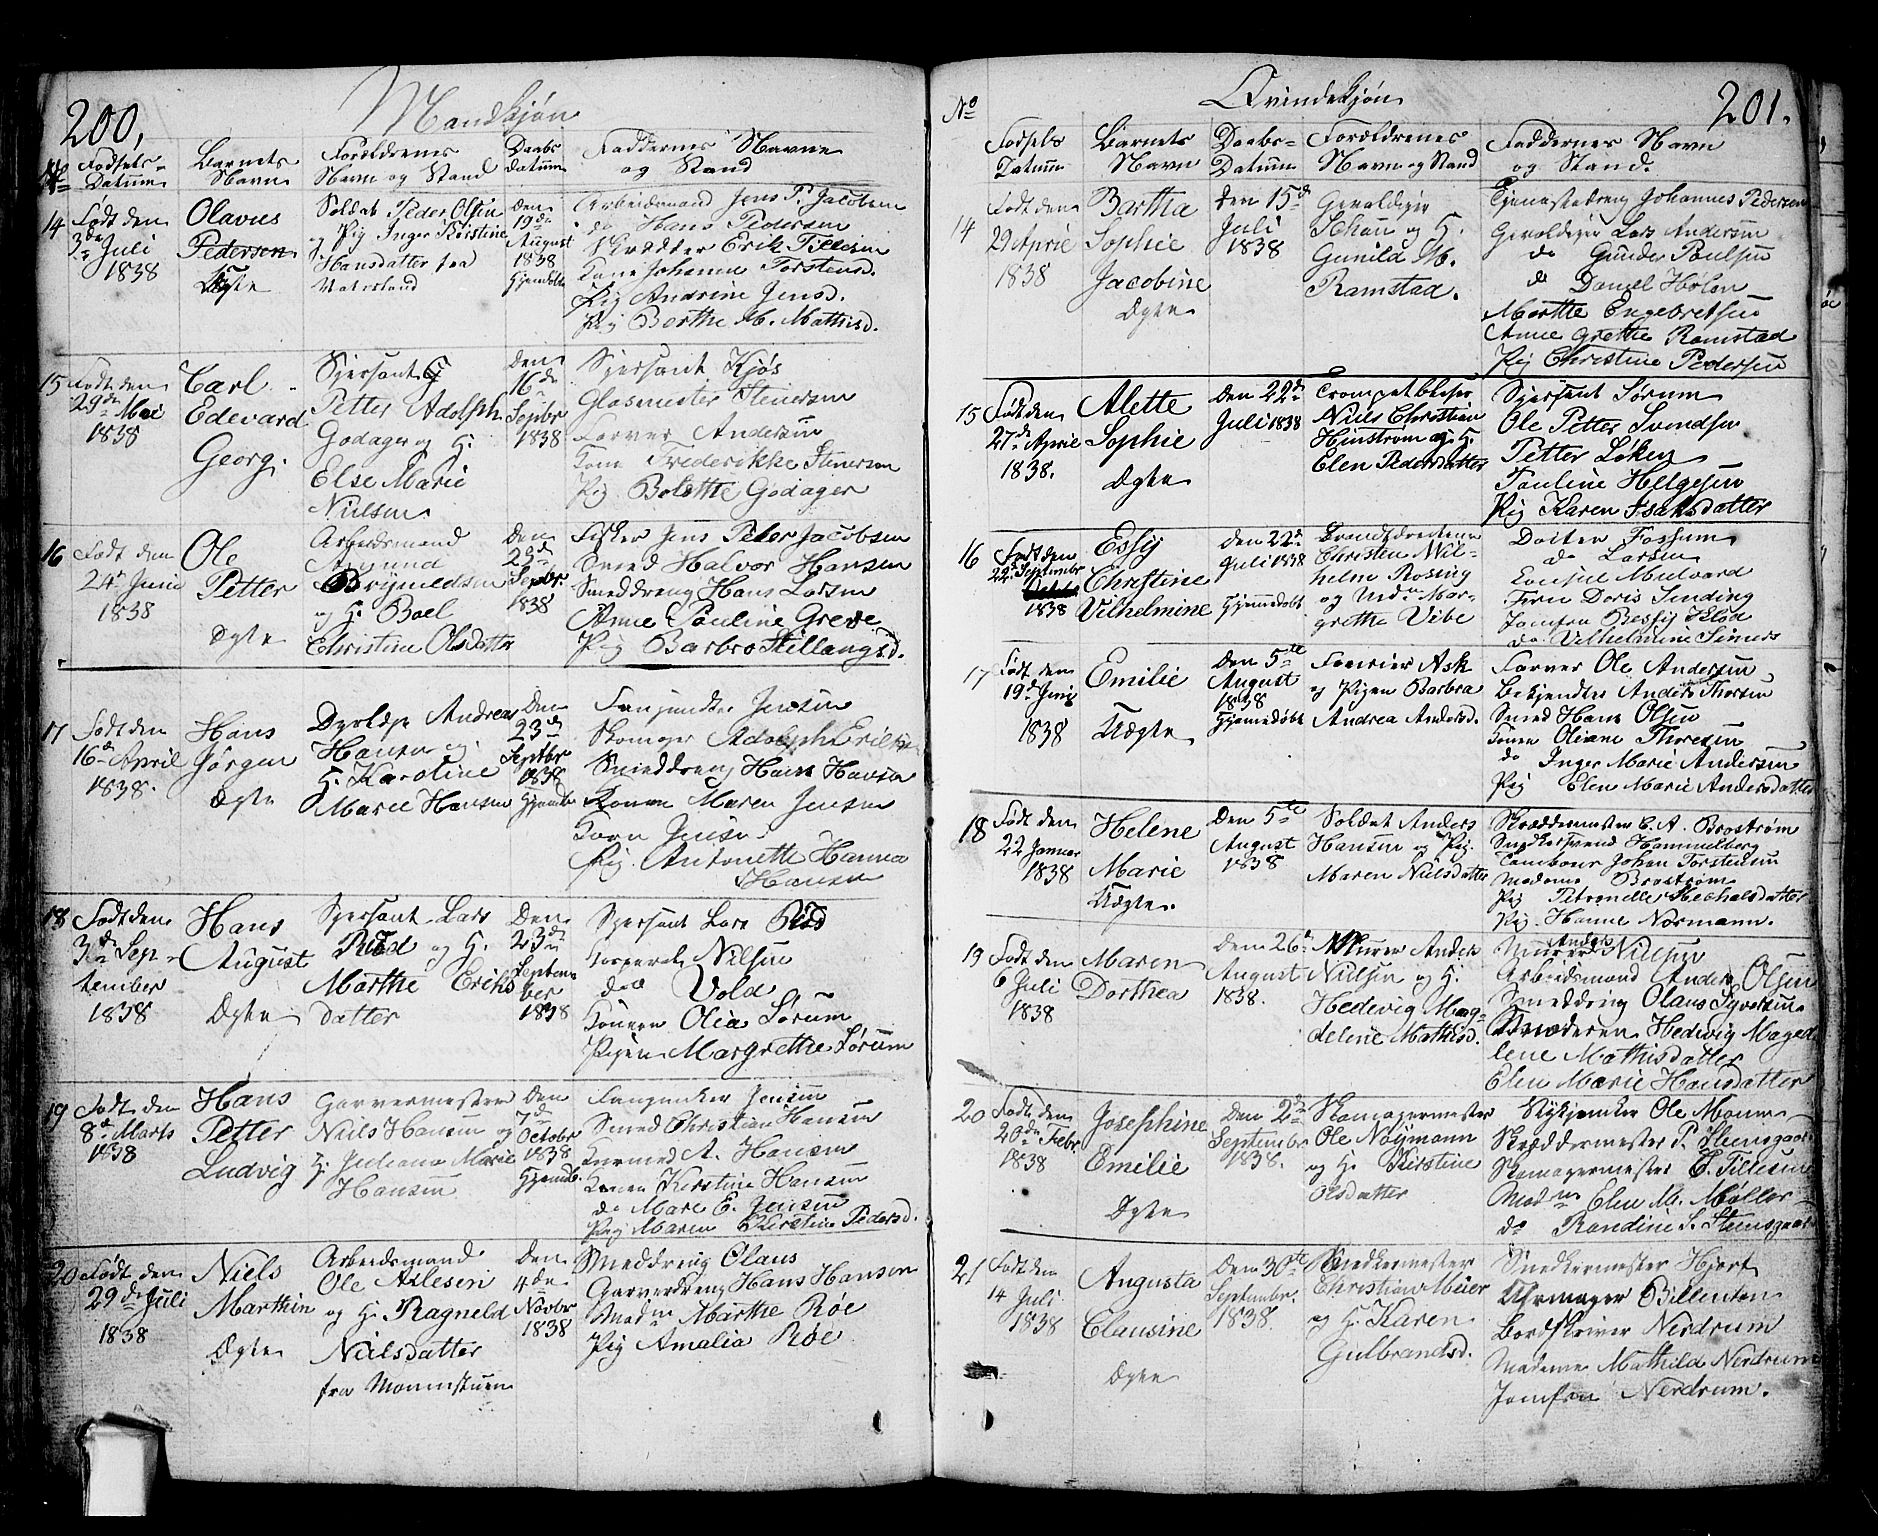 200,
Mandkjøn
No
Fødsels-
Datum
Barnets
Navn
Forældrenes
Navn og Stand
Daabs
datum
Faddernes Navne
og Stand
14
Født den
3de Juli
1838
Olavus
Pedersen
Ægte
Soldat Peder Olsen
og Pig Inger Kirstine
Hansdatter fra
Den
19de
August
1838
Hjemdøbt
Arbeidsmand Jens P. Jacobsen
do Hans Pedersen
Skrædder Erik Tillesen
Kone Johanne Torstensd.
Pig Andrine Jensd.
Pig Berthe M. Mathisd.
15
Født den
29de Mai
1838
Carl
Edevard
Georg.
Sjersant
Petter Adolph
Godager og H.
Else Marie
Nielsen.
Den
16de
Septbr
1838
Sjersant Kjøs
Glasmester Stenersen
Farver Andersen
Kone Frederikke Stenersen
Pig. Bolette Godager
16
Født den
24d Juni
1838
Ole
Petter
Ægte
Arbeidsmand
Amund
Brynildsen
og H. Boel
Christine Olsdatter
Den
Septbr.
1838
Fisker Jens Peter Jacobsen
Smed Halvor Hansen
Smeddreng Hans Larsen
Anne Pauline Grede
Pig Barbro Killangsd.
17
Født den
16d April
1838.
Hans
Jørgen
Ægte
Andreas
Hansen og
H. Karoline
Marie Hansen
Den
23de
Septbr
1838
Hjemdb
Jensen
Skomager Adolph Eriksen
Smeddreng Hans Hansen
Konen Maren Jensen
Karn Jensen
Pig. Antonette Hanna
Hansen
18
Født den
3de Sep-
tember
1838
Hans
August
Ægte
Sjersant Lars
Rød og H.
Marthe Eriks
datter
Den
23de
Septem
ber
1838
Sjersant Lars Rød
Korporal Nilsen
do Vold
Konen Olia Sørum
Pigen Margrethe Sørum
19
Født den
8d Marts
1838
Hans
Petter
Ludvig
Garvermester
Niels Hansen og
H. Juliana Marie
Hansen
Den
7de
Octobr
1838
Hjemdb.
Jensen
Smed Christian Hansen
A. Hansen
Konen Kerstine Hansen
do Mare E. Jensen
Pig Maren Kerstine Pedersd.
20
Født den
29de Juli
1838
Niels
Marthin
Ægte
Arbeidsmand
Ole Aslesen
og H. Ragneld
Nielsdatter
fra Mommstuen
Den
4de
Novbr
1838
Smeddreng Olaus
Garverdreng Hans Hansen
Madm Marthe Røe
Pig Amalia Røe
No
Qvindekjøn
201.
Fødsels
Datum
Barnets
Navn
Daabs-
Datum
Forældrenes
Navn og Stand
Faddernes Navn
og Stand.
14
Født den
29 April
1838
Bertha
Sophie
Jacobine
Ægte
Den 15d
Juli
1838
Gevaldiger
Schau og H.
Gunild M.
Ramstad.
Tjenestedreng Johannes Pedersen
Gevaldiger Lars Andersen
do Gunder Poulsen
do Daniel Hølen
Marthe Engebretsen
Anne Grethe Ramstad
Pig Christine Pedersen
15
Født den
27de April
1838.
Alette
Sophie
Ægte
Den 22de
Juli 1838
Trompetblæser
Niels Christian
Hinstrøm og H.
Elen Pedersdatter
Sjersant Sørum
Ole Petter Svendsen
Petter Løken
Pauline Helgesen
Pig Karen Isaksdatter
16
Født den
22d Septembr
1838
Essy
Christine
Vilhelmine
Den 22d
Juli 1838
Hjemmedøbt
Christen Wil-
helm Rosing
og Mdm Mar-
grethe Vibe
Doiter Fossum
do Larsen
Consul Mulvard
Frue Doris Sinding
Jomfru Bessy Klod
do Vilhelmine Semers
17
Født den
19d Juni
1838
Emilie
Uægte
Den 5te
August
1838
Hjemmedøbt
Fourier Ask
og Pigen Barbra
Andrea Andersd.
Farver Ole Andersen
Bekjendter Anders Thorsen
Smed Hans Olsen
Konen Oliane Thoresen
do Inger Marie Andersen
Pig Elen Marie Andersdatter
18
Født den
22 Januar
1838
Helene
Marie
Uægte.
Den 5te
August
1838
Soldat Anders
Hansen og Pig.
Maren Nielsdatter
Skræddermester C. A. Brostrøm
Snedkersvend Hammelberg
Tambour Johan Torstensen
Madame Brostrøm
Pig Petronelle Mechalsdatter
Pig. Hanne Normann.
19
Født den
6 Juli
1838
Maren
Dorthea
Den 26d
August
1838.
Murer Anders
Nielsen og H.
Hedevig Mag-
delene Mathisd.
Murer Anders Nielsen
Arbeidsmand Anders Olsen
Smeddreng Olaus Syversen
Moderen Hedvig Magde
lene Mathisdatter
Elen Marie Hansdatter
20
Født den
20de Febr.
1838
Josephine
Emilie
Ægte
Den 2de
Septembr
1838.
Skomagermester
Ole Nøymann
og H. Kirstine
Olsdatter
Ole Monsen
Skræddermester P. Steensgaard
Skomagermester E. Tillesen
Madm Elen M. Møller
do Randine S. Steensgaard
21
Født den
14 Juli
1838
Augusta
Clausine
Ægte
Den 30te
Septembr.
1838.
Snedkermester
Christian Meier
og H. Karen
Gulbrandsd.
Snedkermester Hjort
Uhrmager Billenten
Bordskriver Nerdrum
Madame Mathild Nerdrum
Jomfru Nerdrum.